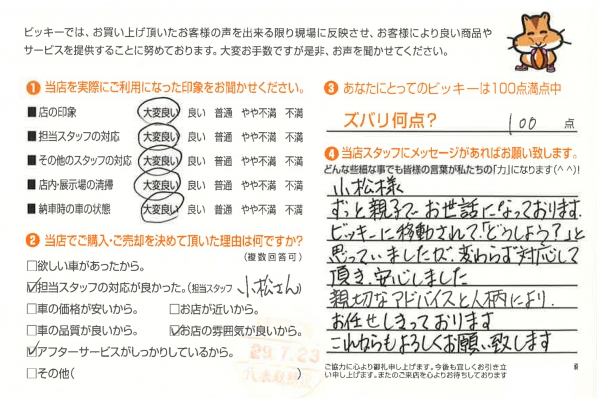 ビッキーでは、お買い上げ頂いたお客様の声を出来る限り現場に反映させ、お客様により良い商品や
サービスを提供することに努めております。大変お手数ですが是非、お声を聞かせてください。
❶ 当店を実際にご利用になった印象をお聞かせください。
■店の印象 大変良い 良い 普通 やや不満 不満
■担当スタッフの対応 大変良い 良い 普通 やや不満 不満
■その他のスタッフの対応 大変良い 良い 普通 やや不満 不満
■店内・展示場の清掃 大変良い 良い 普通 やや不満 不満
■納車時の車の状態 大変良い 良い 普通 やや不満 不満
❷ 当店でご購入・ご売却を決めて頂いた理由は何ですか?
(複数回答可)
□欲しい車があったから。
☑担当スタッフの対応が良かった。(担当スタッフ 小松さん)
□車の価格が安いから。 □お店が近いから。
□車の品質が良いから。 ☑お店の雰囲気が良いから。
☑アフターサービスがしっかりしているから。
□その他( )
29.7.23
❸ あなたにとってのビッキーは100点満点中
ズバリ何点? 100 点
❹ 当店スタッフにメッセージがあればお願い致します。
どんな些細な事でも皆様の言葉が私たちの「力」になります(^^)!
小松様
ずっと親子でお世話になっております.
ビッキーに移動されて「どうしよう?」と
思っていましたが、変わらず対応して
頂き、安心しました
親切なアドバイスと人柄により、
お任せしきっております
これからもよろしくお願い致します
ご協力に心より御礼申し上げます。今後も宜しくお引き立
い申し上げます。またのご来店を心よりお待ちしております